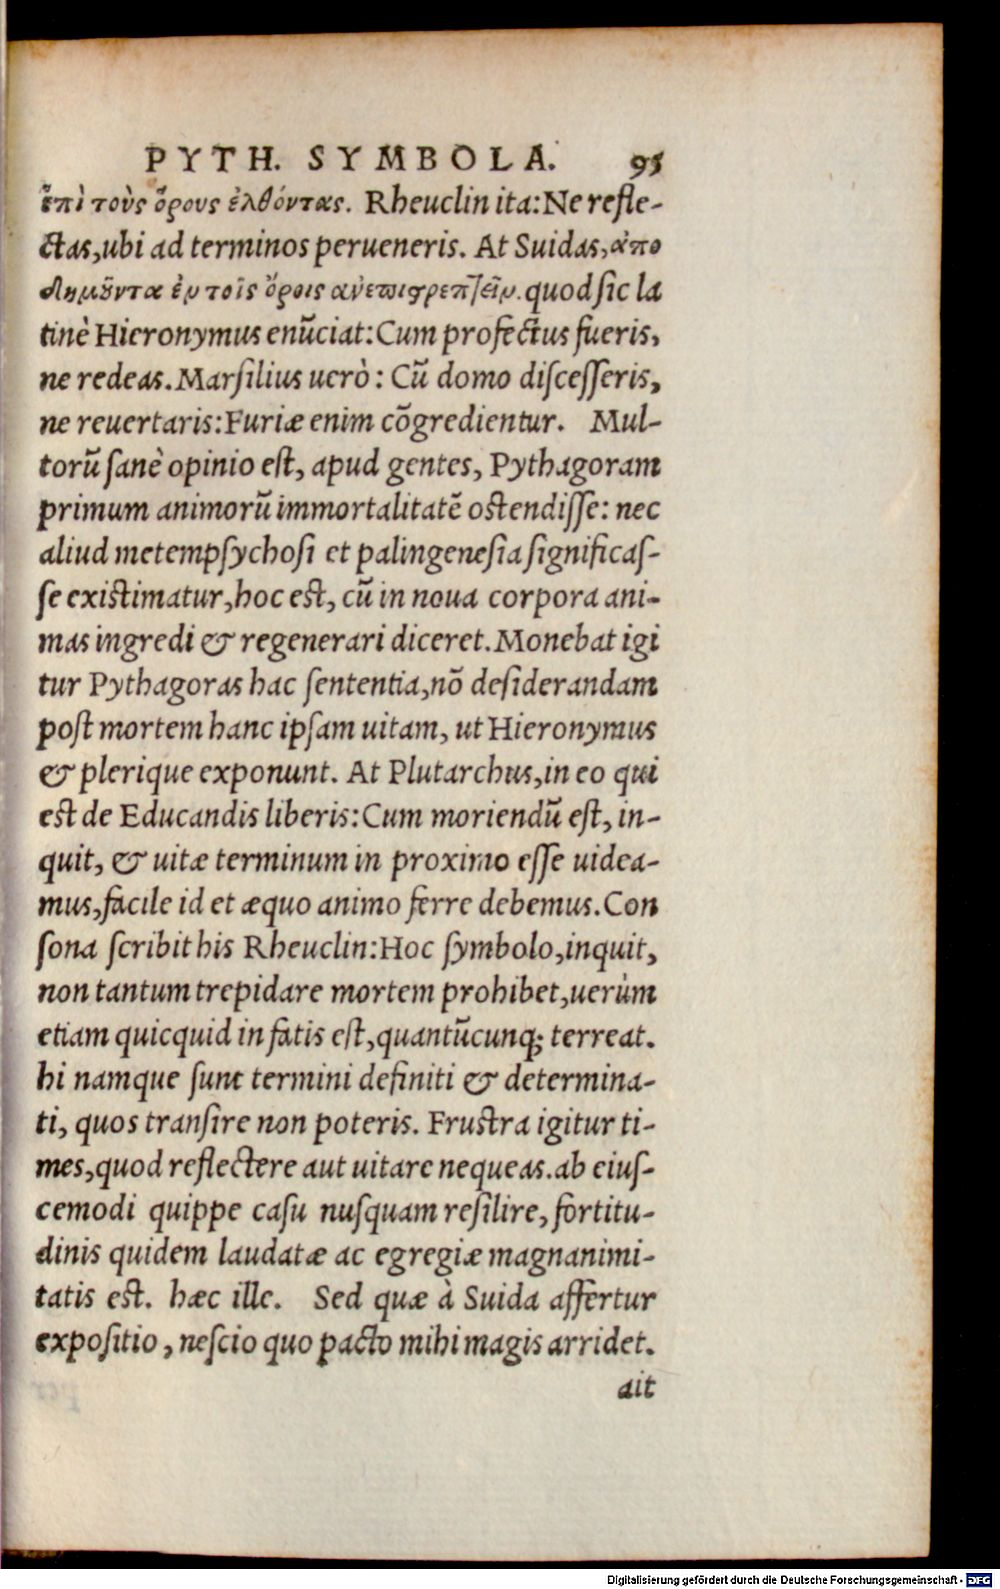 PYTH. SYMBOLA. 95
ἐπὶ τοὺς ὅρους ἐλθόντας. Rheuclin ita: Ne refle-
ctas, ubi ad terminos perueneris. At Suidas, ἀπο
δημοῦντα ἐν τοῖς ὅροις ἀνεπιστρεπτεῖν. quod sic la
tinè Hieronymus enũciat: Cum profectus fueris,
ne redeas. Marsilius uerò: Cũ domo discesseris,
ne reuertaris: Furiæ enim cõgredientur. Mul-
torũ sanè opinio est, apud gentes, Pythagoram
primum animorũ immortalitatẽ ostendisse: nec
aliud metempsychosi et palingenesia significas-
se existimatur, hoc est, cũ in noua corpora ani-
mas ingredi & regenerari diceret. Monebat igi
tur Pythagoras hac sententia, nõ desiderandam
post mortem hanc ipsam uitam, ut Hieronymus
& plerique exponunt. At Plutarchus, in eo qui
est de Educandis liberis: Cum moriendũ est, in-
quit, & uitæ terminum in proximo esse uidea-
mus, facile id et æquo animo ferre debemus. Con
sona scribit his Rheuclin: Hoc symbolo, inquit,
non tantum trepidare mortem prohibet, uerùm
etiam quicquid in fatis est, quantũcunq; terreat.
hi namque sunt termini definiti & determina-
ti, quos transire non poteris. Frustra igitur ti-
mes, quod reflectere aut uitare nequeas. ab eius-
cemodi quippe casu nusquam resilire, fortitu-
dinis quidem laudatæ ac egregiæ magnanimi-
tatis est. hæc ille. Sed quæ à Suida affertur
expositio, nescio quo pacto mihi magis arridet.
ait
Digitalisierung gefördert durch die Deutsche Forschungsgemeinschaft - DFG